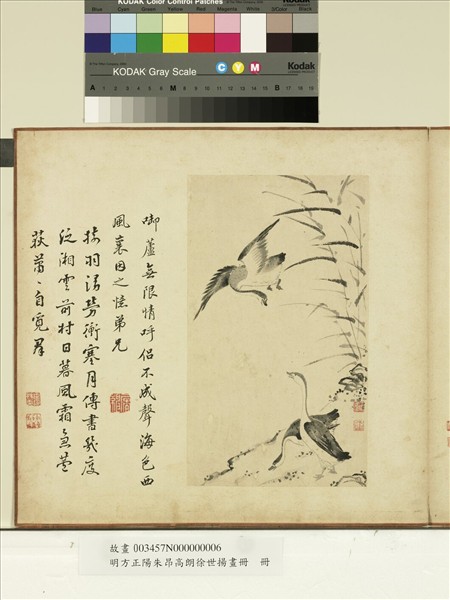 KODAK Color Control Patches
Blue Cyan Green Yellow Red Magenta White 3/Color Black
KODAK Gray Scale
C Y M
Kodak
A 1 2 3 4 5 6 M 8 9 10 11 12 13 14 15 B 17 18 19
啣蘆無限情呼侶不成聲海色西
風裏因之憶弟兄
羽銜寒月傳書幾度
泛湘雲前村日暮風霜急
荻蕭〻自覓群
故畫 003457N000000006
明方正陽朱昂高朗徐世揚畫冊 冊